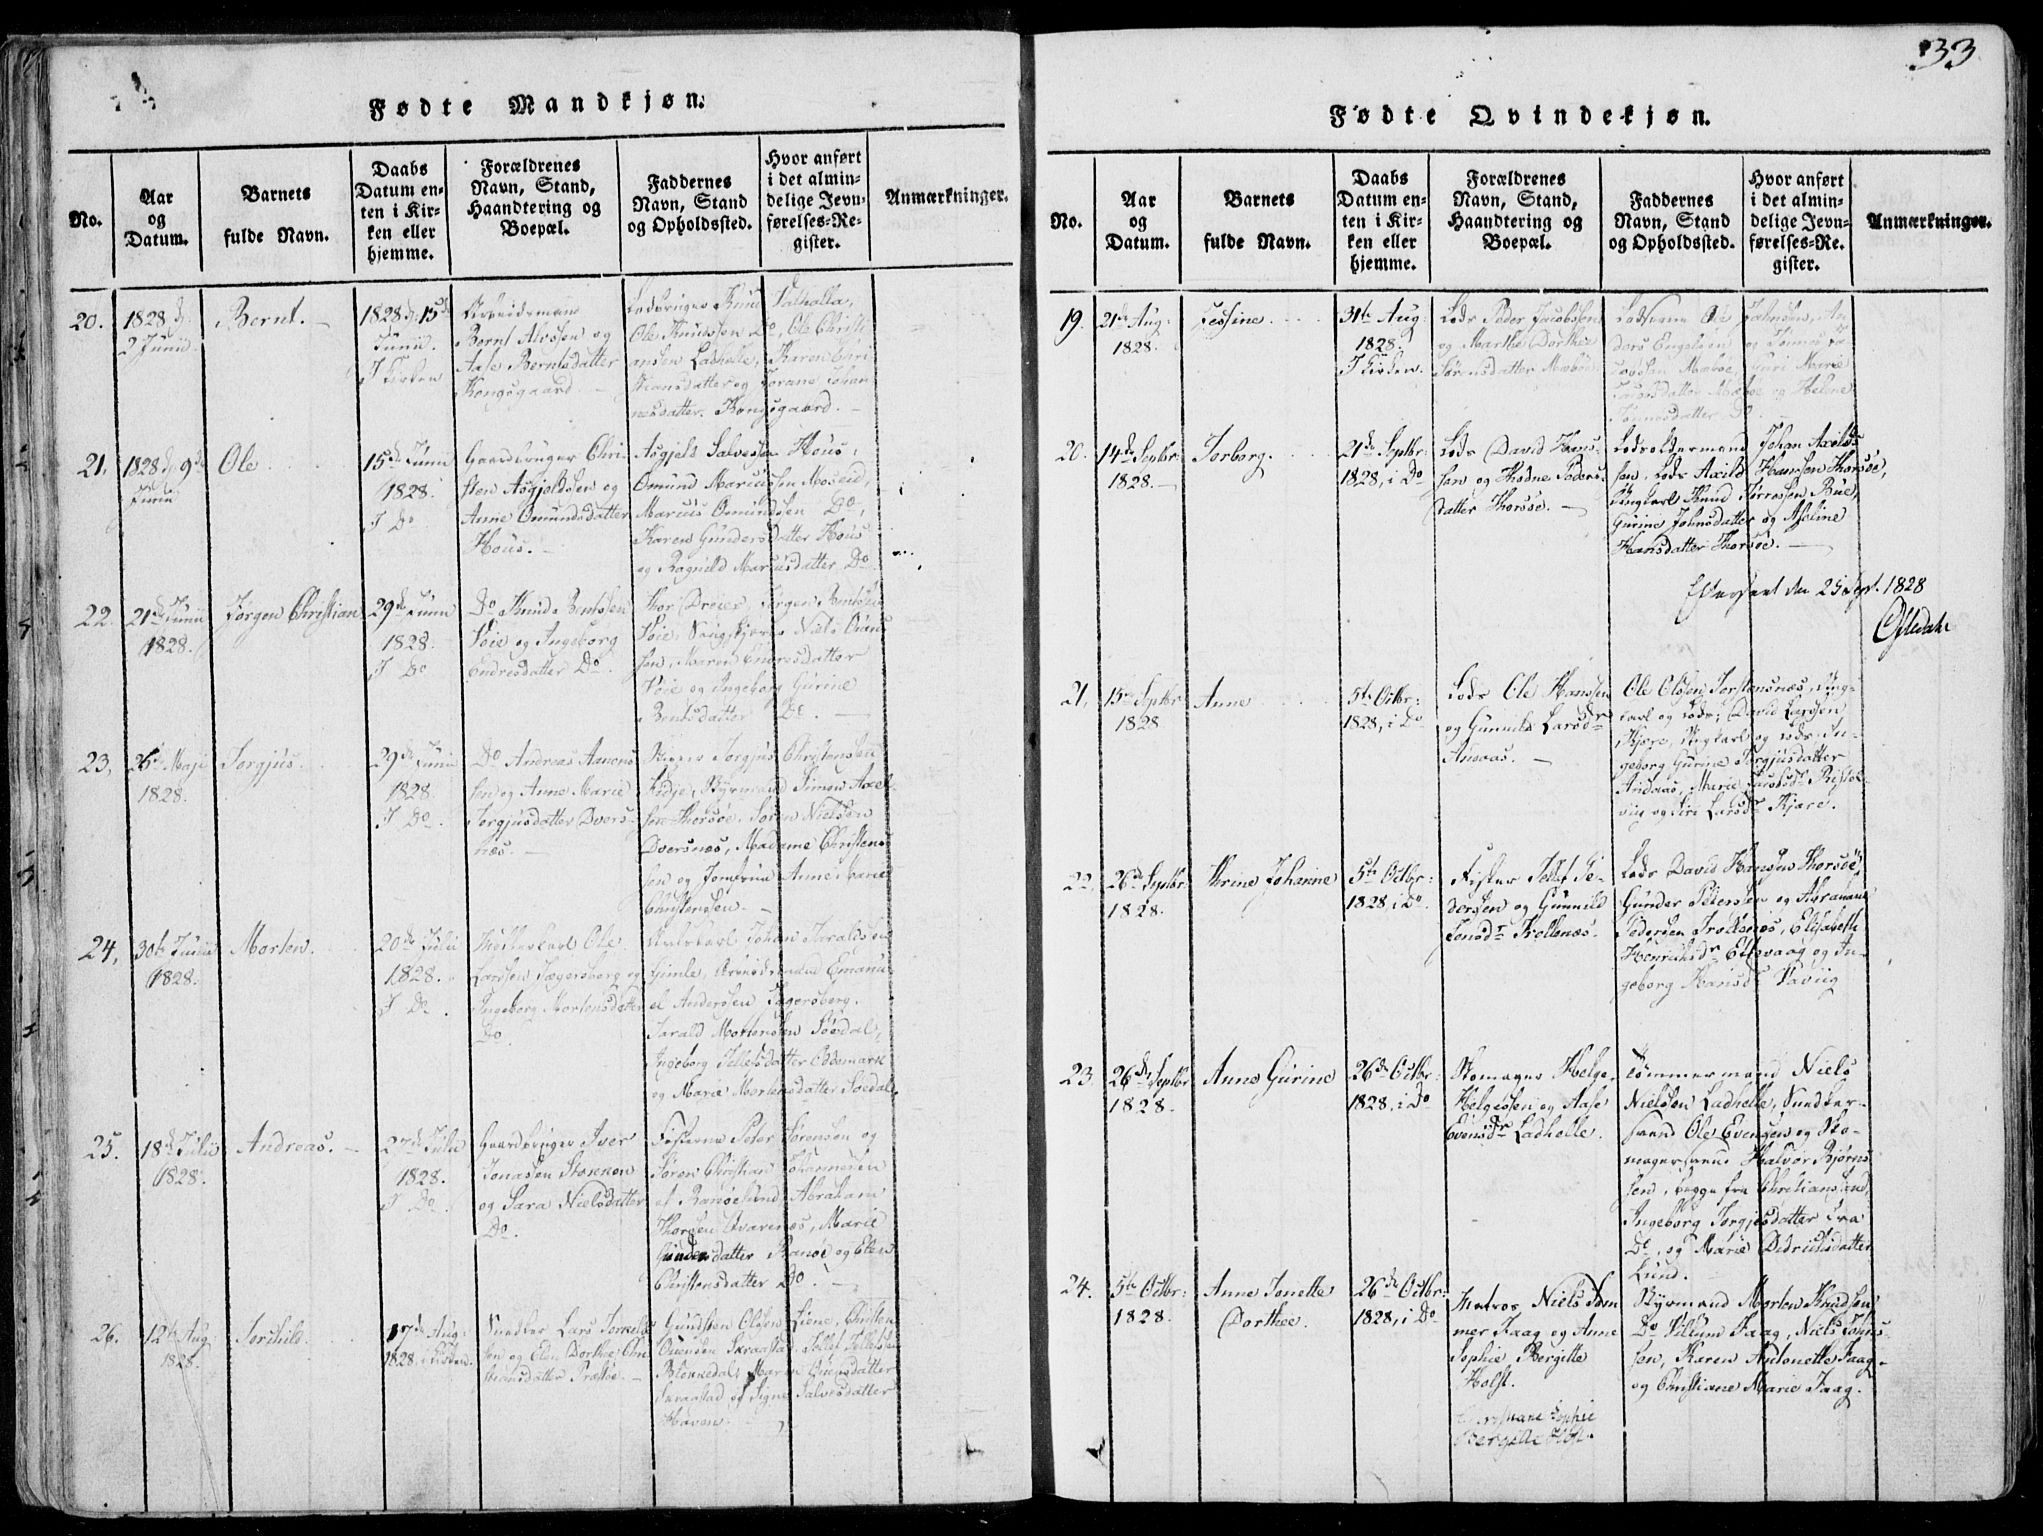 33
Fødte Mandkjøn.
No.
Aar og Datum.
Barnets fulde Navn.
Daabs Datum enten i Kirken eller hjemme.
Forældrenes Navn, Stand, Haandtering og Boepæl.
Faddernes Navn, Stand og Opholdssted.
Hvor anført i det almindelige Jevnførelses-Register.
Anmærkninger.
20.
1828 d.
2 Junii.
Bernt.
1828 d. 15de
Junii.
I Kirken
Arbeidsmand
Bernt Alossen og
Aase Berntsdatter
Kongsgaard
Ole Knudssen Do, Ole Christi
ansen Ladhelle, Karen Chri
stiansdatter og Jorane Johan
nesdatter Kongsgaard.
21.
1828 d. 9de
Junii
Ole
15de Junii
1828.
I Do
Gaardbruger Chri
sten Asgjeldsen og
Anne Omundsdatter
Hous.
Asgjeld Salvesen Hous,
Omund Mariussen Moseid,
Marius Omundsen Do,
Karen Gundersdatter Hous
og Ragnild Mariusdatter Do
22.
21de Junii
1828.
Jørgen Christian
29de Junii
1828.
I Do
Do Knud Bentssen
Voie og Ingeborg
Endresdatter Do.
Thor Dreier, Jørgen Bentssen
Voie,
sen, Maren Endresdatter
Voie og Ingeborg Gurine
Bentsdatter Do.
23.
25de Maji
1828.
Torgjus.
29de Junii
1828.
I Do.
Do Andreas Aanons
sen og Anne Marie
Torgjusdatter Dvers-
næs.
Torgjus Christensen
Fidje, Styrmand Simon Axel
sen Thorsøe, Søren Nielsen
Dversnæs, Madame Christens
sen og Jomfrue Anne Marie
Christensen.
24.
30te Junii
1828.
Morten.
20de Julii
1828.
I Do.
Ole
Larssen Jægersberg og
Ingeborg Mortensdatter
Do.
Johan Taraldsen
Gimle, Arbeidsmand Emanu
el Anderssen Jægersberg.
Tarald Mortenssen Sødal,
Ingeborg Tellefsdatter Oddemark
og Marie Mortensdatter Sødal.
25.
18de Julii
1828.
Andreas.
27de Julii
1828.
I Do.
Gaardbruger Iver
Jonassen Stænnen
og Sara Nielsdatter
Do.
Fiskerne Peter Sørensen og
Søren Christian Johannesen
af Randøesund, Abraham
Thorsen Kvarenes, Marie
Gundersdatter Randøe og Elen
Christensdatter Do.
26.
12te Aug
1828.
Torkild.
17de Aug:
1828, i Kirken.
Snedker Lars Torkilds
sen og Elen Dorthe Chri
stiansdatter Præstøe.
Gundsten Olsen Liene, Christen
Ouensen Skraastad, Tellef Tellefsen
Blørnedal, Maren
Skraastad og Signe Salvesdatter
Haaven.
Fødte Qvindekjøn.
No.
Aar og Datum.
Barnets fulde Navn.
Daabs Datum enten i Kirken eller hjemme.
Forældrenes Navn, Stand, Haandtering og Boepæl.
Faddernes Navn, Stand og Opholdssted.
Hvor anført i det almindelige Jevnførelses-Re. gister.
Anmærkninger.
19.
21de Aug:
1828.
Jessine.
31te Aug:
1828.
I Kirken.
Lods Peder Jacobssen
og Marthe Dorthea
Sørensdatter Mæbøe.
Lodserne Ole Johnsen, An
ders Engelsen og Tønnes Ja
cobsen Mæbøe, Marie
Jacobsdatter Mæbøe og Helene
Tønnesdatter Do.
20.
14de Septbr:
1828.
Torborg.
21de Septbr:
1828, i Do
Lods David Hans-
sen og Thodne Peders-
datter Thorsøe.
Lodsoldermand Johan Axelds
sen, Lods Axild Hanssen Thorsøe,
Ungkarl Knud Tørressen Bue,
Gurine Johnsdatter og Aseline
Hansdatter Thorsøe.
Efterseet den 25 Sept. 1828
Oftedahl
21.
15de Septbr:
1828
Anne
5te Octbr:
1828, i Do
Lods Ole Hanssen
og Gunnild Larsdr
Andaas.
Ole Olssen Torstensnæs, Ung-
karl og Lods; David Larssen
Kjære, Ungkarl og Lods; In-
geborg Gurine Torgjusdatter
Andaas, Marie Jacobsdr Ristøl-
vig og Siri Larsdr Kjære.
22.
26de Septbr:
1828.
Thrine Johanne
5te Octbr:
1828, i Do
Fisker Tellef Pe-
dersen og Gunnild
Jensdr Trollenæs.
Lods David Hanssen Thorsøe,
Gunder Peterssen og Abraham
Pedersen Trollenæs, Elisabeth
Henriksdr Ettevaag og In-
geborg Hansdr Vaavig
23.
26de Septbr
1828.
Anne Gurine
26de Octbr:
1828, i Do
Skomager Helge
Helgessen og Aase
Evensdr Ladhelle.
Tømmermand Niels
Nielssen Ladhelle, Snedker-
svend Ole Evensen og Sko-
magersvend Halvor Bjørns
sen, begge fra Christiansand,
Ingeborg Torgjesdatter fra
Do, og Marie Didrichsdatter
Lund.
24.
5te Octbr:
1828.
Anne Jonette
Dorthee.
26de Octbr:
1828, i Do
Matros Niels Tom
mer Faag og Anne
Sophie Bergitte
Holst.
Christiane Sophie
Bergitte Holst.
Styrmand Morten Knudsen,
Do Villum Faag, Niels Johns
sen, Karen Antonette Faag
og Christiane Marie Faag.